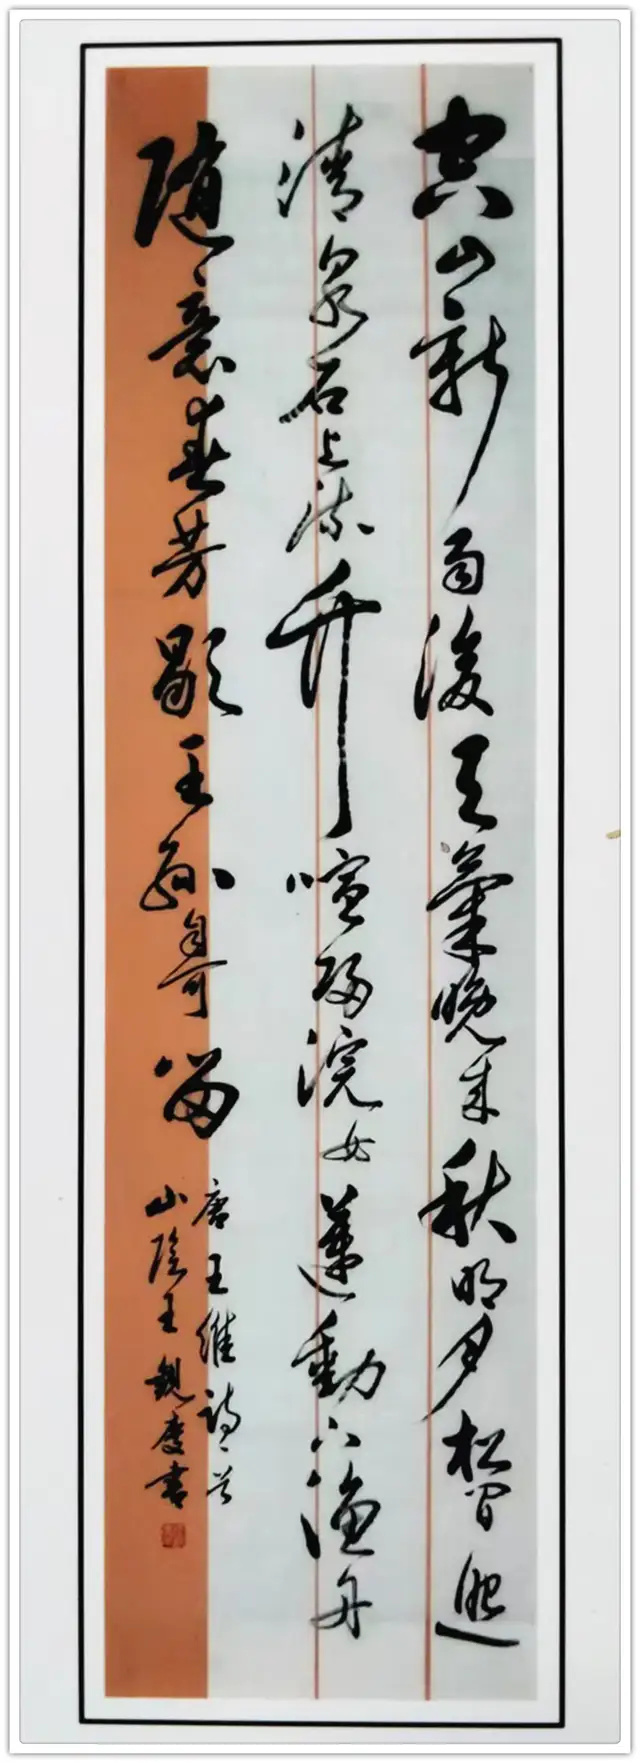 空山新雨後天氣晚來秋明月松間照
清泉石上流竹喧歸浣女蓮動下漁舟
隨意春芳歇王孫自可留
唐王維詩一首
山陰王書